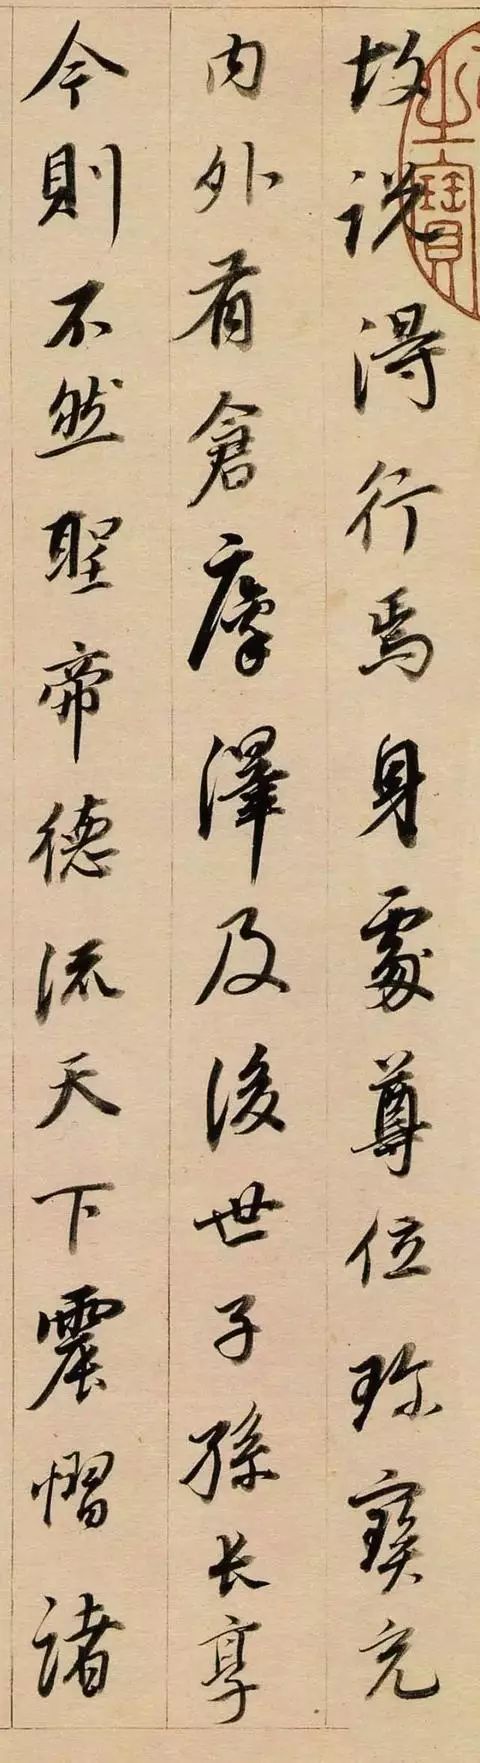 故說得行焉身處尊位珍寶充
內外有倉廩澤及後世子孫長享
今則不然聖帝德流天下震慴諸
寶